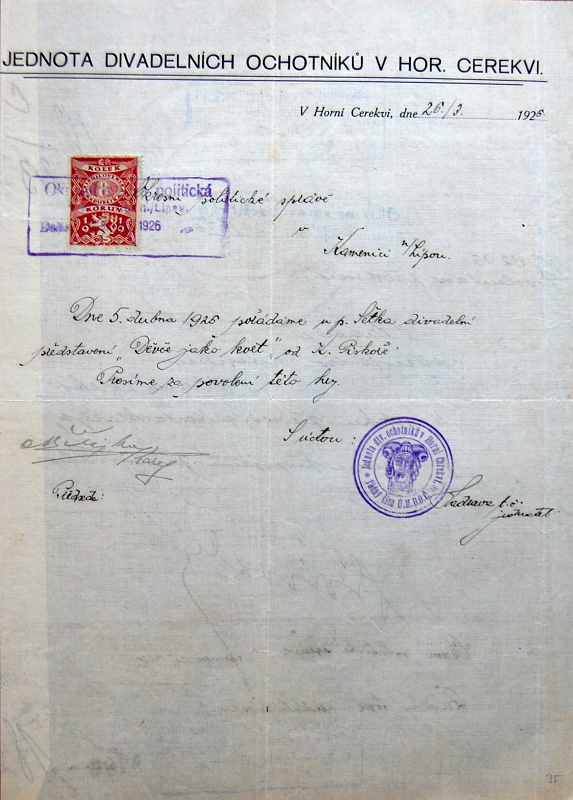 JEDNOTA DIVADELNÍCH OCHOTNÍKŮ V HOR. CEREKVI.
V Horní Cerekvi, dne 26./3. 1926.
KOLEK
KORUN
politická
1926
Okresní politické správě
v
Kamenici n/Lipou.
Dne 5. dubna 1926 pořádáme u p. divadelní
představení „Děvče jako květ" od K. Piskoře
Prosíme za povolení této hry.
S úctou:
Jednota div. ochotníků v Horní Cerekvi.
řádný člen Ú.M.D.O.Č.
Předseda:
t.č.
jednatel
35